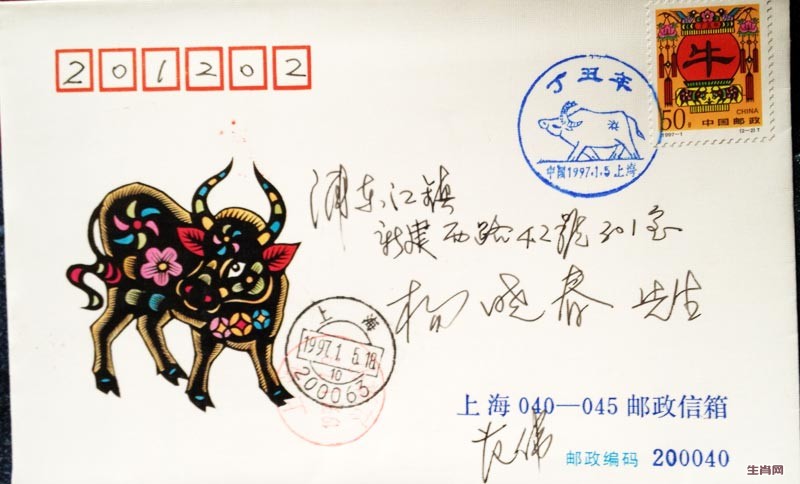 201202
丁丑年
中國1997.1.5上海
牛
CHINA
50分
中国邮政
1997-1
(2-2)T
浦东江镇
新建西路42號301室
杨晓春 先生
上海
1997.1.5.18
10
200063
上海 040—045 邮政信箱
邮政编码 200040
生肖网